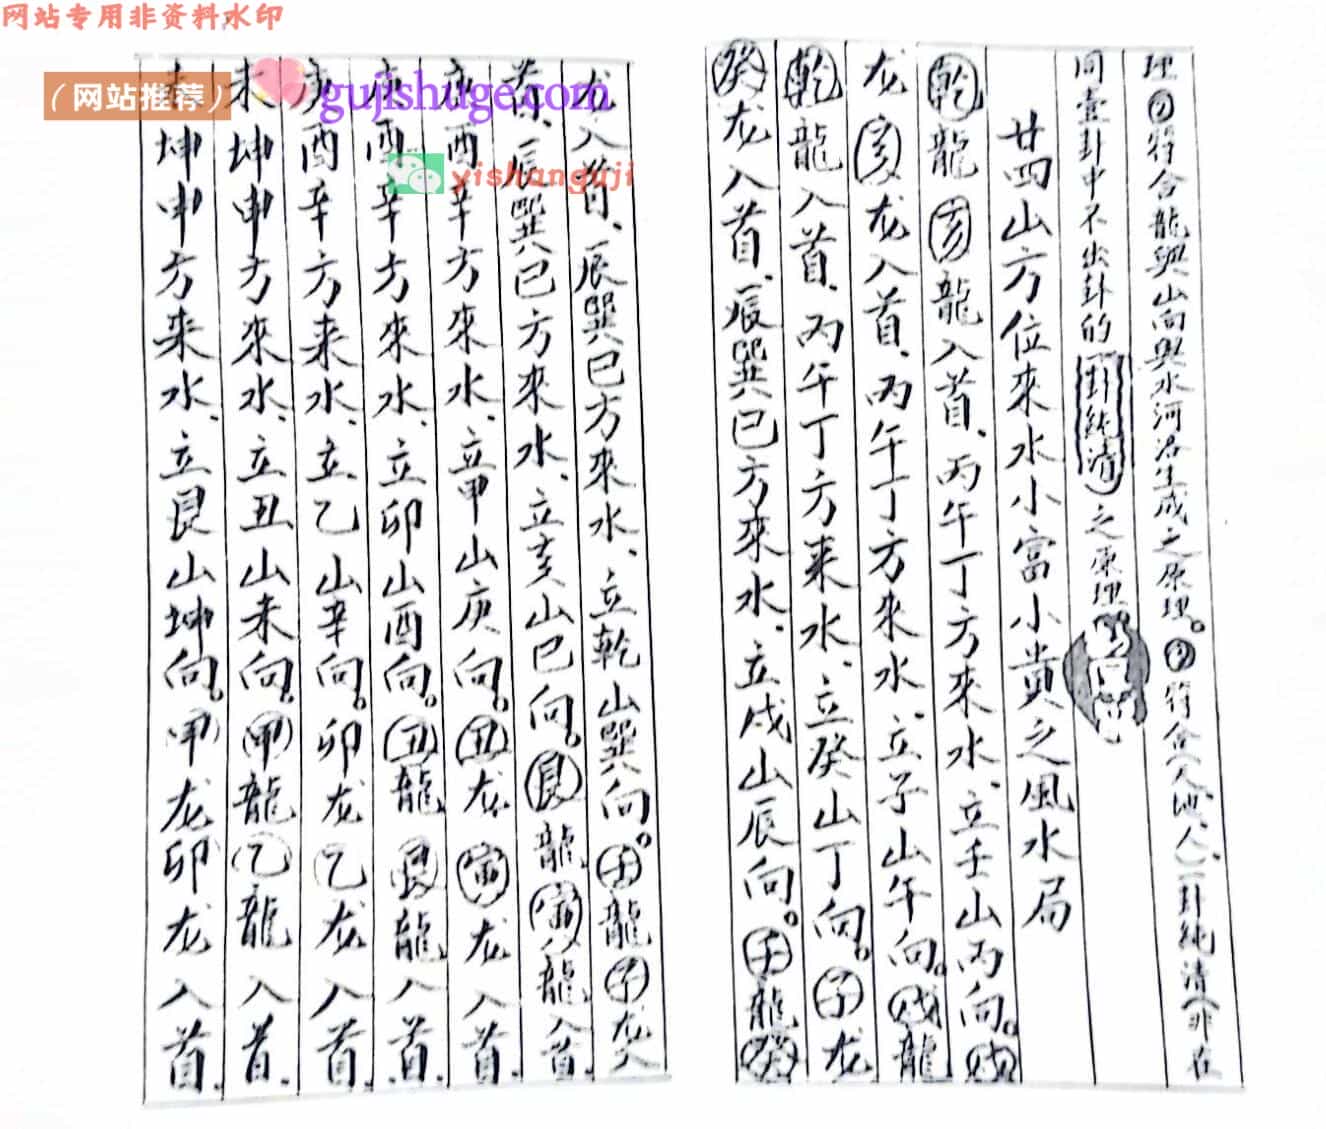 网站专用非资料水印
（网站推荐）
gujishuge.com
yishanguji
理②符合龍與山向與水河洛生成之原理。③符合（天地人）一卦純清（非在
同壹卦中不出卦的一卦純清）之原理
廿四山方位來水小富小貴之風水局
乾龍亥龍入首、丙午丁方來水、立壬山丙向。戌
龙亥龙入首、丙午丁方來水、立子山午向。戌龍
乾龍入首、丙午丁方来水、立癸山丁向。子龙
癸龙入首、辰巽巳方來水、立戌山辰向。壬龍癸
龙入首、辰巽巳方來水、立乾山巽向。壬龍子龙入
首、辰巽巳方來水、立亥山巳向。艮龍寅龍入首、
庚酉辛方來水、立甲山庚向。丑龙寅龙入首、
庚酉辛方來水、立卯山酉向。丑龍艮龍入首、
庚酉辛方来水、立乙山辛向。卯龙乙龙入首、
未坤申方來水、立丑山未向。甲龍乙龍入首、
未坤申方来水、立艮山坤向。甲龙卯龙入首、